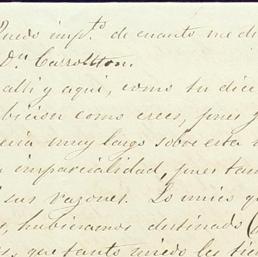 impto. de cuanto me di
Dn. Carrollton.
alli y aqui, como tu dice
bicion como crees, pues
eria muy largo sobre esta
imparcialidad, pues tam
sus razones. Lo unico qu
s, hubieramos destinado
s, que tanto miedo les tie